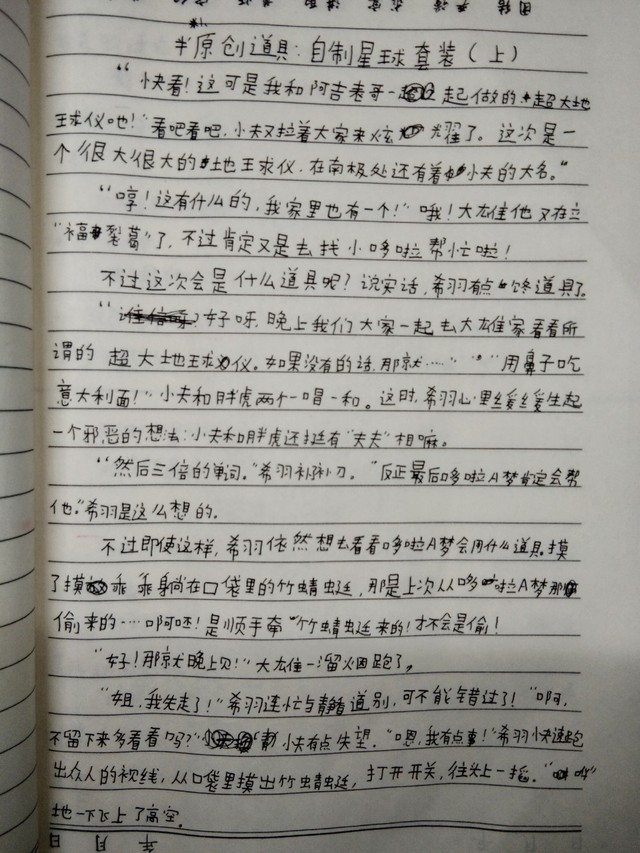 半原创道具：自制星球套装（上）
“快看！这可是我和阿吉表哥一起做的超大地
球仪吔！”看吧看吧，小夫又拉着大家来炫耀了。这次是一
个很大很大的地球仪，在南极处还有着小夫的大名。”
“哼！这有什么的，我家里也有一个！”哦！大雄他又在立
“福裂葛”了，不过肯定又是去找小哆啦帮忙啦！
不过这次会是什么道具呢？说实话，希羽有点馋道具了。
“好呀，晚上我们大家一起去大雄家看看所
谓的超大地球仪。如果没有的话，那就……”“用鼻子吃
意大利面！”小夫和胖虎两个一唱一和。这时，希羽心里缓缓生起
一个邪恶的想法：小夫和胖虎还挺有“夫夫”相嘛。
“然后三倍的单词。”希羽补补刀。“反正最后哆啦A梦肯定会帮
他。”希羽是这么想的。
不过即使这样，希羽依然想去看看哆啦A梦会用什么道具。摸
了摸乖乖躺在口袋里的竹蜻蜓，那是上次从哆啦A梦那
偷来的……啊呸！是顺手牵“竹蜻蜓”来的！才不会是偷！
“好！那就晚上见！”大雄一溜烟跑了。
“姐，我先走了！”希羽连忙与静香道别，可不能错过了！“啊，
不留下来多看看吗？”小夫有点失望。“嗯，我有点事！”希羽小夫速跑
出众人的视线，从口袋里摸出竹蜻蜓，打开开关，往头上一插。
地一下飞上了高空。
年 月 日